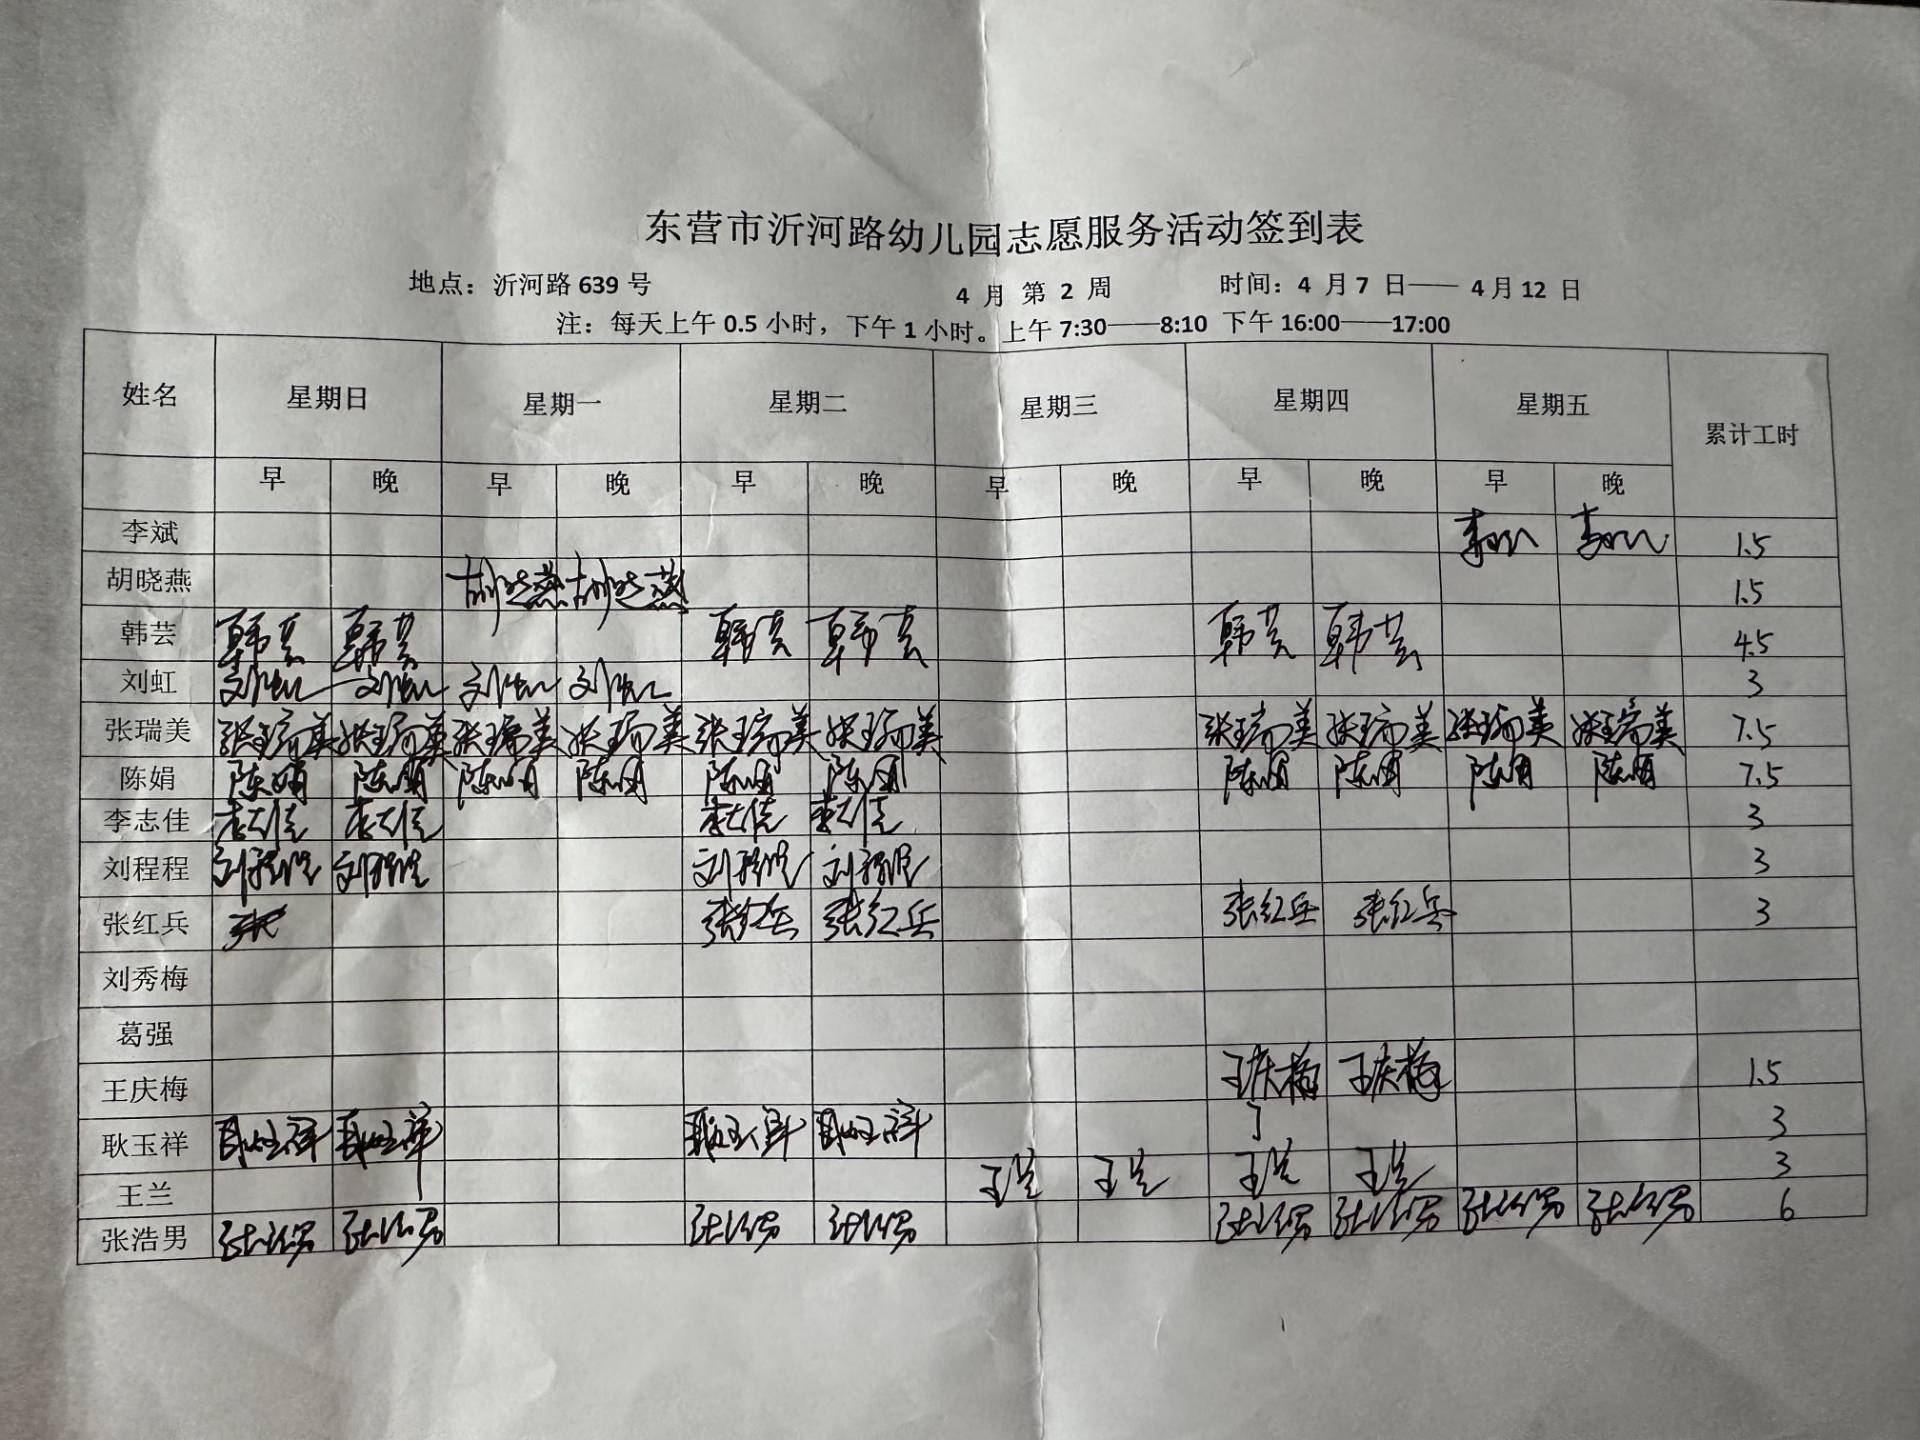 东营市沂河路幼儿园志愿服务活动签到表
地点：沂河路 639 号 4 月 第 2 周 时间：4 月 7 日—— 4 月 12 日
注：每天上午 0.5 小时，下午 1 小时。上午 7:30——8:10 下午 16:00——17:00
姓名 星期日 星期一 星期二 星期三 星期四 星期五 累计工时
早 晚 早 晚 早 晚 早 晚 早 晚 早 晚
李斌 李斌 李斌 1.5
胡晓燕 胡晓燕 胡晓燕 1.5
韩芸 韩芸 韩芸 韩芸 韩芸 韩芸 韩芸 4.5
刘虹 刘虹 刘虹 刘虹 刘虹 3
张瑞美 张瑞美 张瑞美 张瑞美 张瑞美 张瑞美 张瑞美 张瑞美 张瑞美 张瑞美 张瑞美 7.5
陈娟 陈娟 陈娟 陈娟 陈娟 陈娟 陈娟 陈娟 陈娟 陈娟 陈娟 7.5
李志佳 李志佳 李志佳 李志佳 李志佳 3
刘程程 刘程程 刘程程 刘程程 刘程程 3
张红兵 张 张红兵 张红兵 张红兵 张红兵 3
刘秀梅
葛强
王庆梅 王庆梅 王庆梅 1.5
耿玉祥 耿玉祥 耿玉祥 耿玉祥 耿玉祥 3
王兰 王兰 王兰 王兰 王兰 3
张浩男 张浩男 张浩男 张浩男 张浩男 张浩男 张浩男 张浩男 张浩男 6